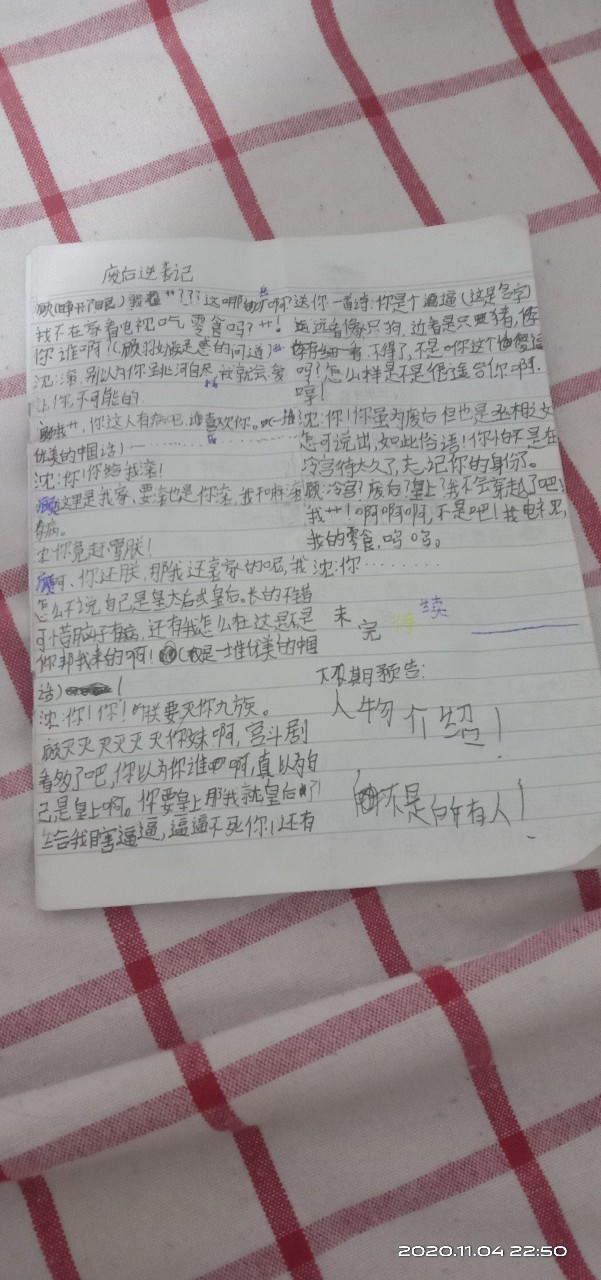 废后逆袭记
顾(睁开了眼) 我 " ??? 这哪的 啊
我不在 看着电视吃零食吗? 艹!
你谁啊! (顾 是懵的问道)
沈: 滚, 别以为你 跳河自尽, 我就会爱
上你, 不可能的.
顾: 我艹, 你这人有病吧, 谁喜欢你。 一堆
优美的中国话) ……
沈: 你! 你给我滚!
顾 这里是我家, 要滚也是你滚, 我 滚
有病。
沈: 你竟赶骂朕!
顾: 呵、你还朕, 那我还 的呢, 我
怎么不说自己是皇太后或皇后。长的不错
可惜脑子有病, 还有我怎么在这 是不是
你绑我来的啊! (又是一堆优美的中国
话) !
沈: 你! 你! 朕要灭你九族。
顾 灭 灭灭灭灭你妹啊, 宫斗剧
看多了吧, 你以为你谁 啊, 真以为自
己是皇上啊。你要皇上 那我就皇后
给我 逼逼, 逼逼不死你! 还有
送你一首诗: 你是个 逼 (这是名字)
远看像只狗, 近看是只 猪,
仔细一看, 不得了, 不是 你这个 逼
吗? 怎么样是不是很适合你啊.
哼!
沈: 你! 你虽为废后但也是丞相之女
怎可说出, 如此俗语! 你怕不是在
冷宫待太久了, 忘记你的身份了。
顾: 冷宫? 废后? 皇上? 我不会穿越了吧!
我艹! 啊啊啊, 不是吧! 我电视,
我的零食, 呜呜。
沈: 你 ……
未 完 待 续
下期预告:
人物介绍!
不是所有人!
2020.11.04 22:50